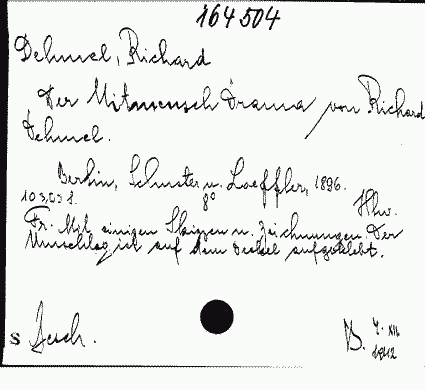 164504
Dehmel, Richard
Der Mitmensch Drama von Richard
Dehmel.
Berlin, Schuster u. Loeffler, 1896.
8°
Hlw.
Fr. Mit einigen Skizzen u. Zeichnungen. Der
Umschlag ist auf dem Deckel aufgeklebt.
s
B.